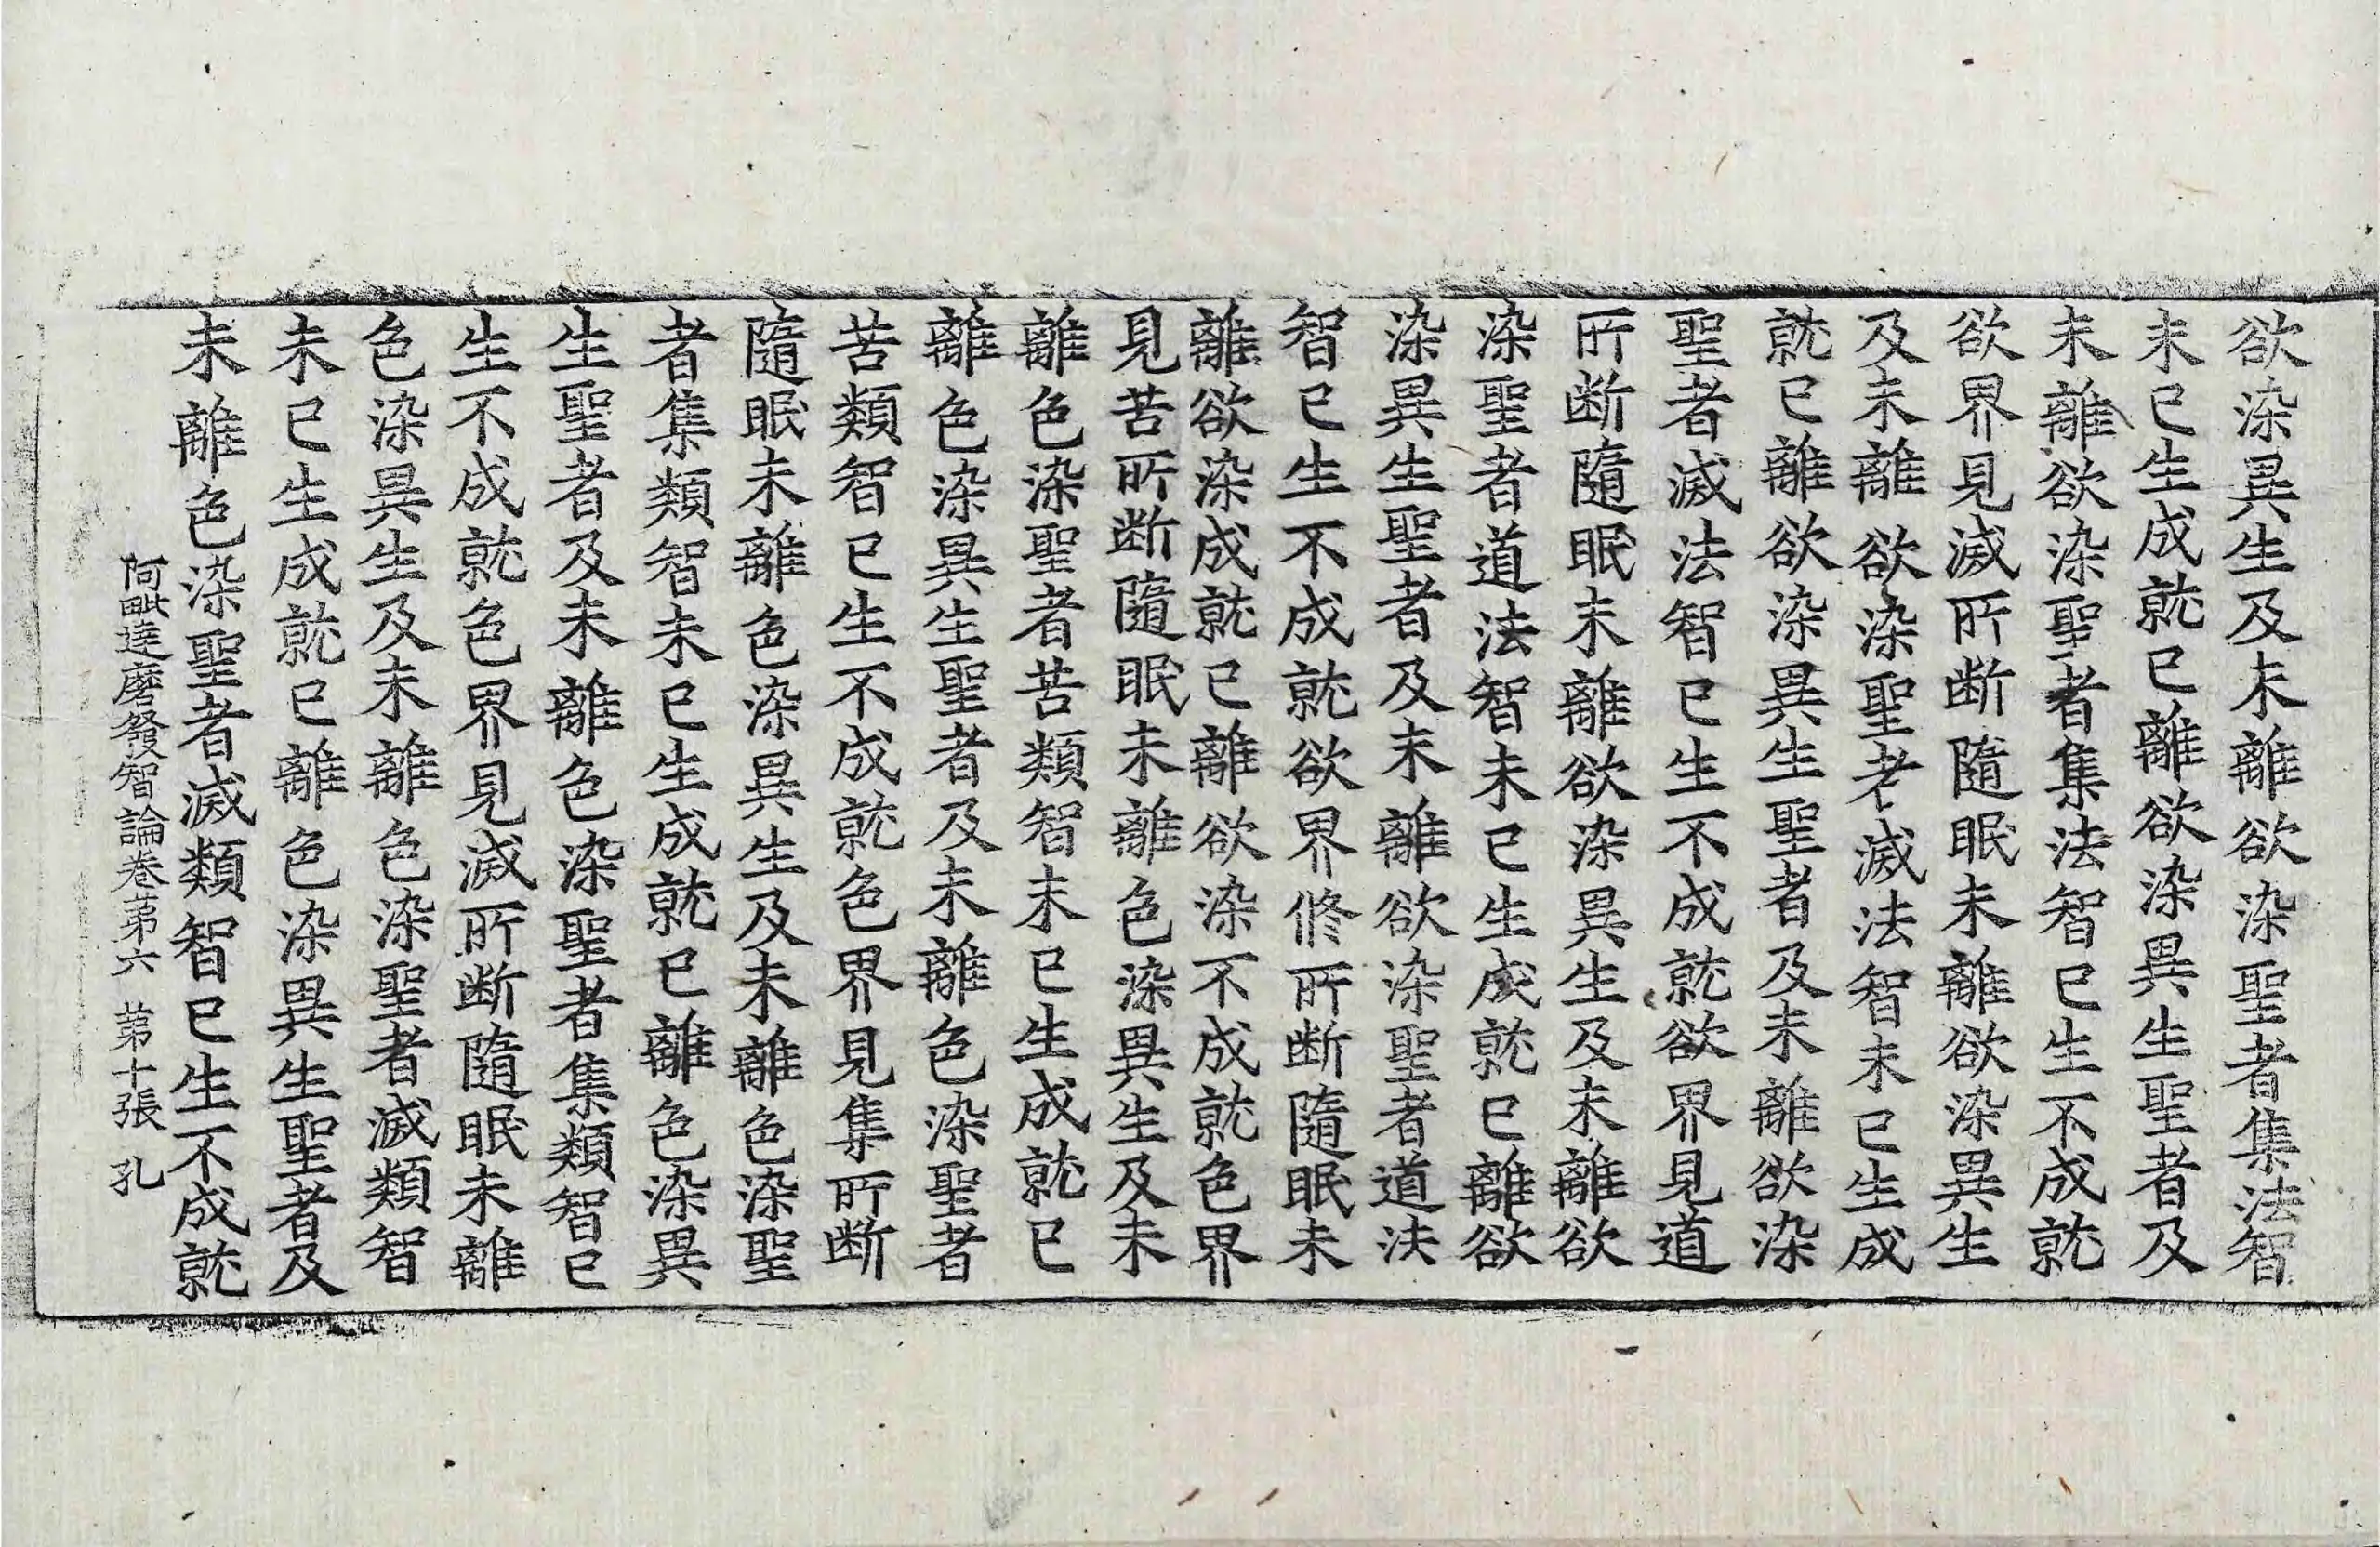 欲染異生及未離欲染聖者集法智
未已生成就已離欲染異生聖者及
未離欲染聖者集法智已生不成就
欲界見滅所断隨眠未離欲染異生
及未離欲染聖者滅法智未已生成
就已離欲染異生聖者及未離欲染
聖者滅法智已生不成就欲界見道
所断隨眠未離欲染異生及未離欲
染聖者道法智未已生成就已離欲
染異生聖者及未離欲染聖者道法
智已生不成就欲界修所断隨眠未
離欲染成就已離欲染不成就色界
見苦所断隨眠未離色染異生及未
離色染聖者苦類智未已生成就已
離色染異生聖者及未離色染聖者
苦類智已生不成就色界見集所断
隨眠未離色染異生及未離色染聖
者集類智未已生成就已離色染異
生聖者及未離色染聖者集類智已
生不成就色界見滅所断隨眠未離
色染異生及未離色染聖者滅類智
未已生成就已離色染異生聖者及
未離色染聖者滅類智已生不成就
阿毗達磨發智論卷苐六 苐十張 孔